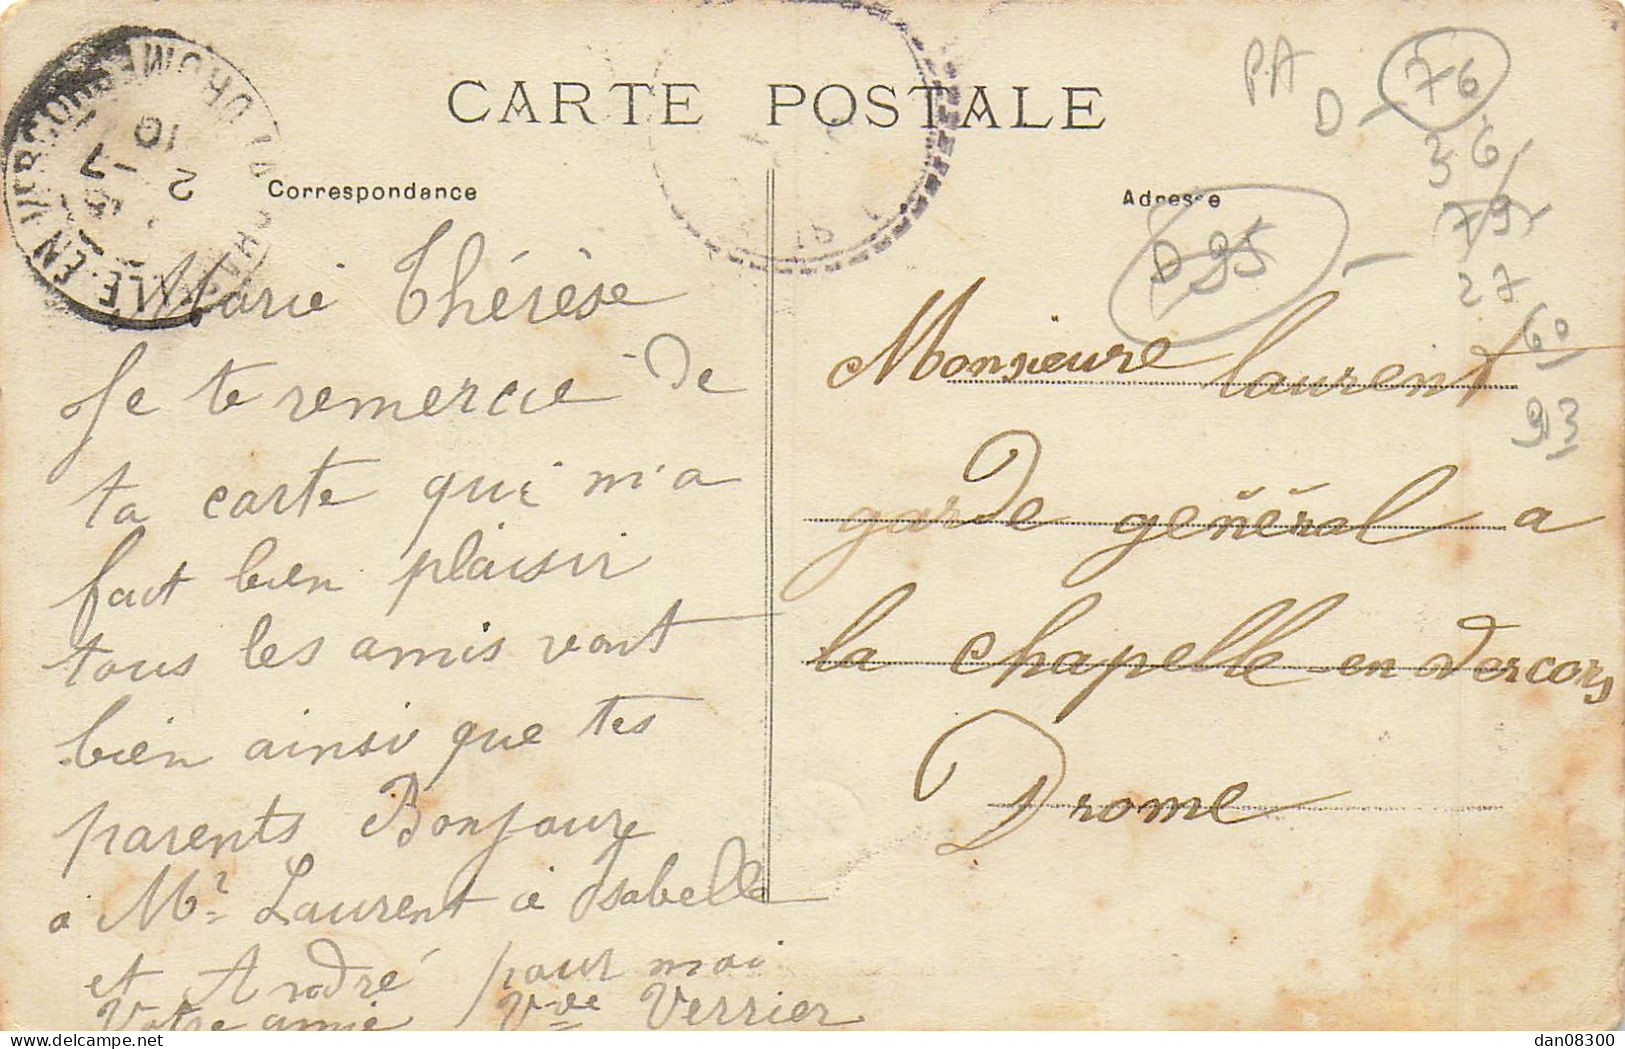 CARTE POSTALE
Correspondance
Marie Thérèse
Je te remercie de
ta carte qui m'a
fait bien plaisir
tous les amis vont
bien ainsi que tes
parents Bonjour
a Mr Laurent a Isabelle
et André pour moi
Votre amie Vve Verrier
Adresse
Monsieure laurent
garde général a
la chapelle en Vercors
Drome
PA
D - 76
36
79
27
60
93
LA CHAPELLE-EN-VERCORS DROME
10
2 - 7
dan08300